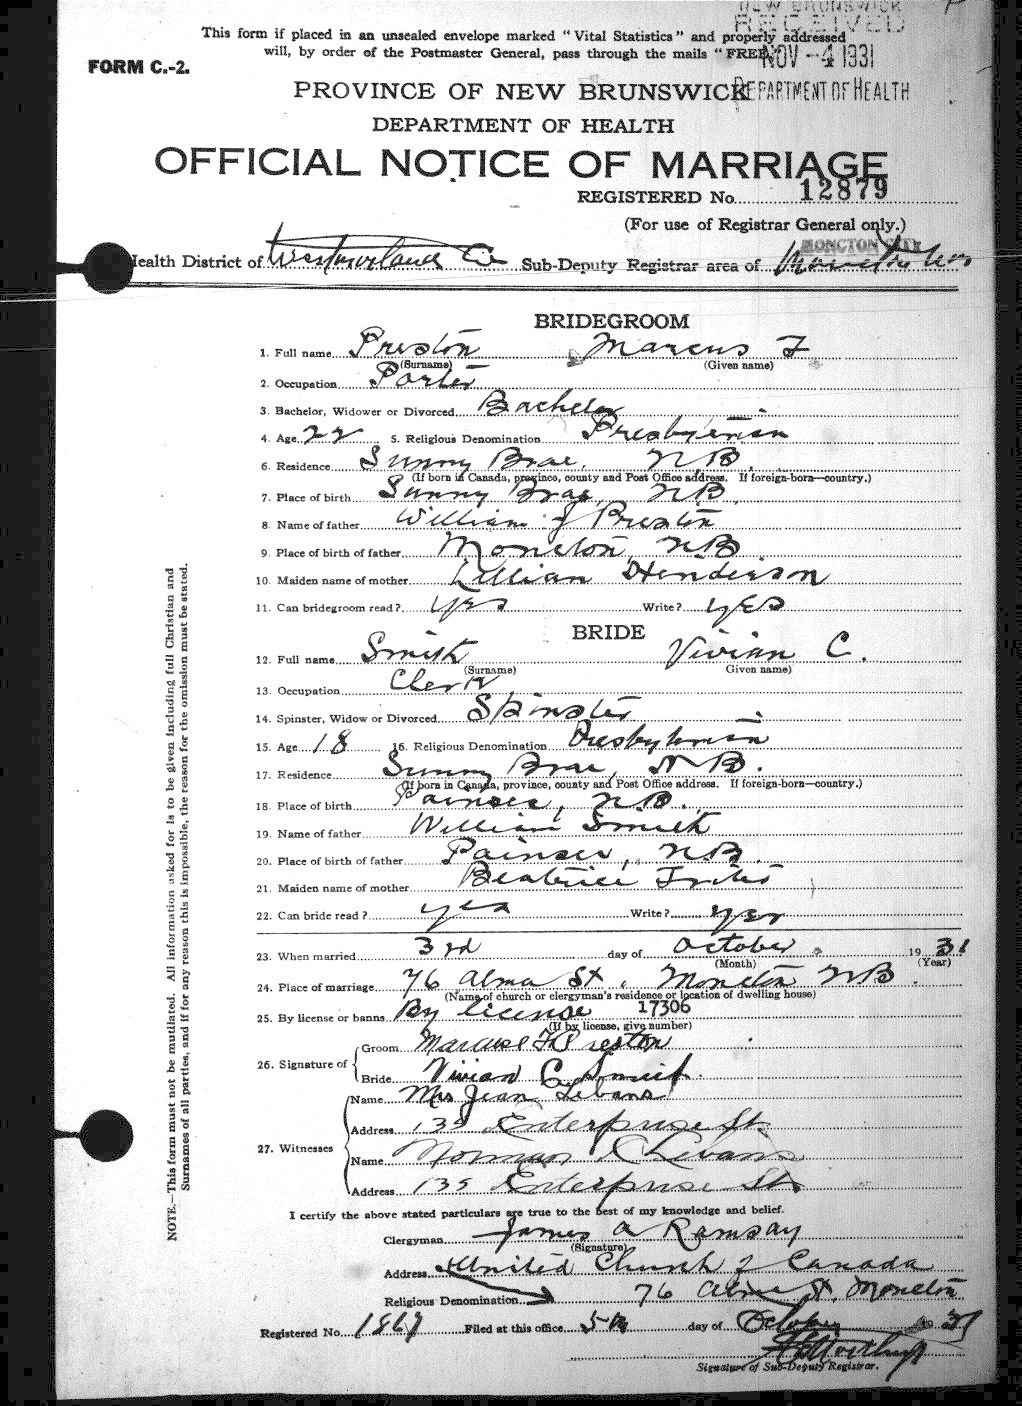 NEW BRUNSWICK
RECEIVED
This form if placed in an unsealed envelope marked "Vital Statistics" and properly addressed
will, by order of the Postmaster General, pass through the mails "FREE"
NOV -4 1931
FORM C.-2.
PROVINCE OF NEW BRUNSWICK
DEPARTMENT OF HEALTH
DEPARTMENT OF HEALTH
OFFICIAL NOTICE OF MARRIAGE
REGISTERED No. 12879
(For use of Registrar General only.)
MONCTON CITY
Health District of Westmorland Co Sub-Deputy Registrar area of Moncton
BRIDEGROOM
1. Full name Preston Marcus F
(Surname) (Given name)
2. Occupation Porter
3. Bachelor, Widower or Divorced Bachelor
4. Age 22 5. Religious Denomination Presbyterian
6. Residence Sunny Brae, NB.
(If born in Canada, province, county and Post Office address. If foreign-born—country.)
7. Place of birth Sunny Brae, NB.
8. Name of father William J Preston
9. Place of birth of father Moncton, NB.
10. Maiden name of mother Lillian Henderson
11. Can bridegroom read? yes Write? yes
BRIDE
12. Full name Smith Vivian C.
(Surname) Given name)
13. Occupation Clerk
14. Spinster, Widow or Divorced Spinster
15. Age 18 16. Religious Denomination Presbyterian
17. Residence Sunny Brae, NB.
(If born in Canada, province, county and Post Office address. If foreign-born—country.)
18. Place of birth Painsec, NB.
19. Name of father William Smith
20. Place of birth of father Painsec, NB.
21. Maiden name of mother Beatrice Trites
22. Can bride read? yes Write? yes
23. When married 3rd day of October 1931
(Month) (Year)
24. Place of marriage 76 Alma St, Moncton NB.
(Name of church or clergyman's residence or location of dwelling house)
25. By license or banns By license 17306
(If by license, give number)
26. Signature of
Groom Marcus F Preston
Bride Vivian C Smith
27. Witnesses
Name Mrs Jean
Address 135 Enterprise St.
Name Norman
Address 135 Enterprise St.
I certify the above stated particulars are true to the best of my knowledge and belief.
Clergyman James A Ramsay
(Signature)
Address United Church of Canada
Religious Denomination 76 Alma St, Moncton
Registered No. 1867 Filed at this office 5th day of October 1931
Signature of Sub-Deputy Registrar.
NOTE.—This form must not be mutilated. All information asked for is to be given including full Christian and
Surnames of all parties, and if for any reason this is impossible, the reason for the omission must be stated.